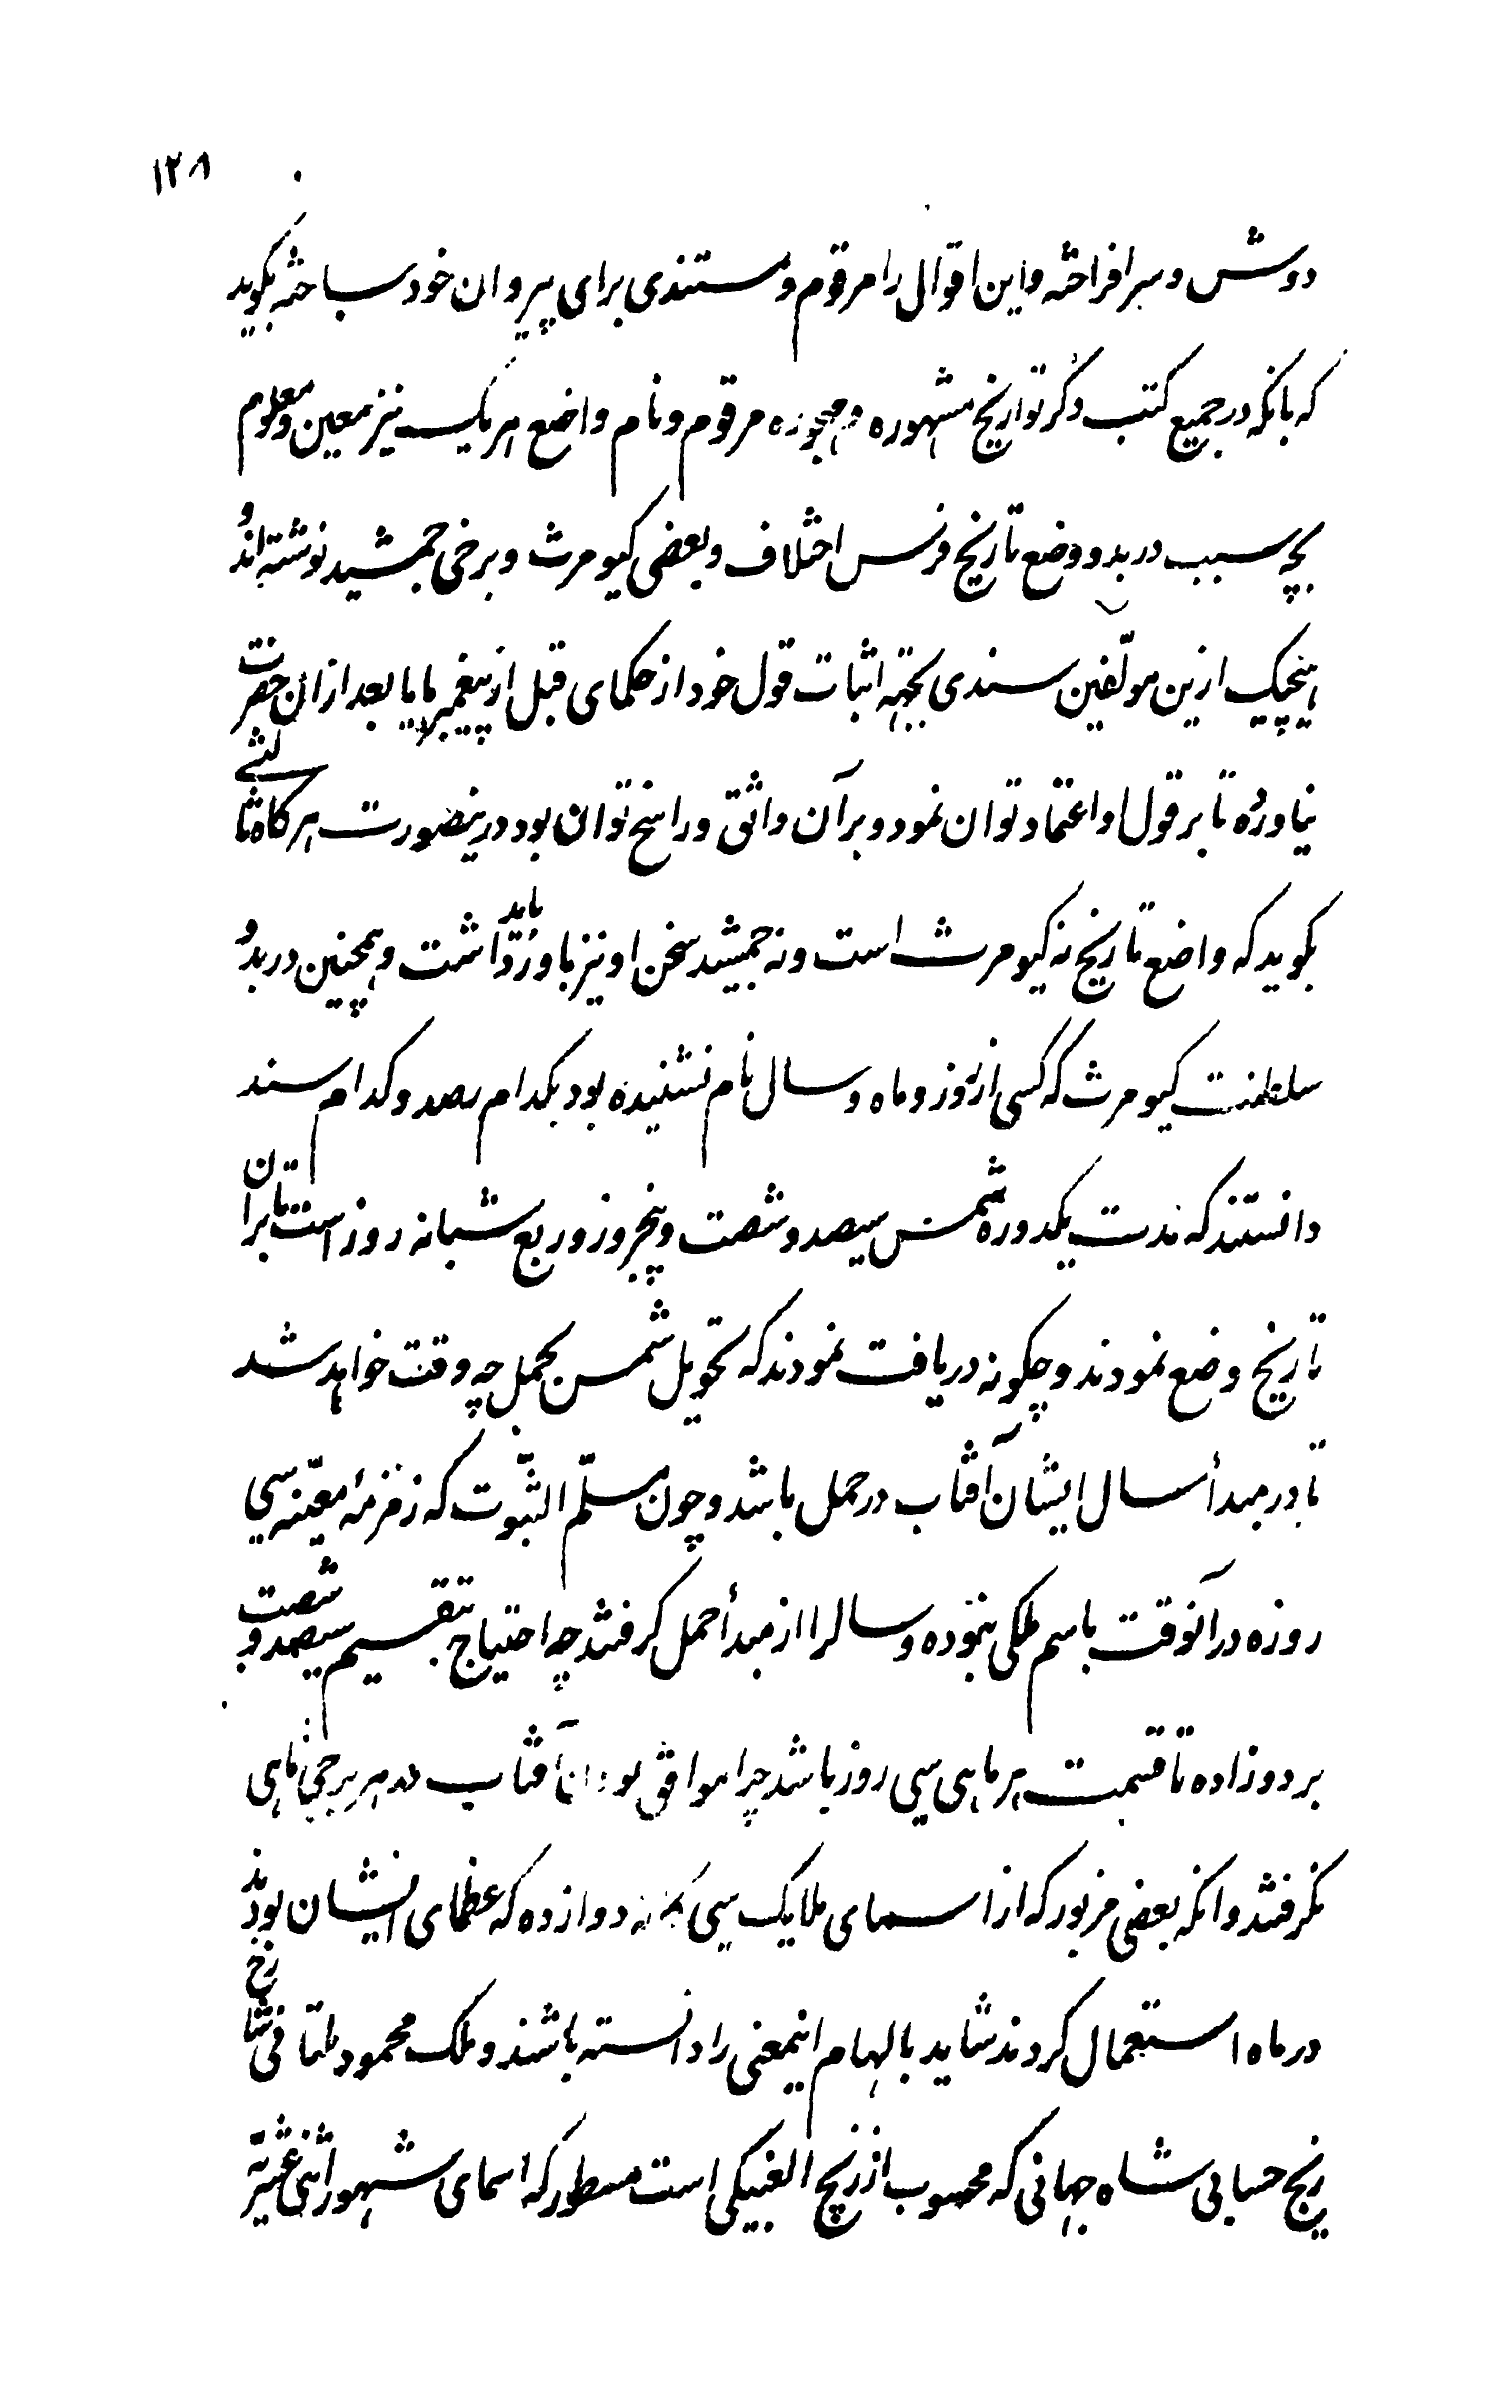 ۱۲۸
دوش و سر افراخته و این اقوال را مرقوم و مستندی برای پیروان خود ساخته بگوید
که بآنکه در جمیع کتب ذکر تواریخ مشهوره و مهجوره مرقوم و نام واضع هر یک نیز معین و معلوم
بچه سبب در بدو وضع تاریخ فرس اختلاف و بعضی کیومرث و برخی جمشید نوشته‌اند و
هیچیک ازین مولّفین سندی بجهته اثبات قول خود از حکمای قبل از پیغمبر ما یا بعد از ان حضرت
نیاورده تا بر قول او اعتماد توان نمود و بر آن واثق و راسخ توان بود درینصورت هرگاه ثالثی
بگوید که واضع تاریخ نه کیومرث است و نه جمشید سخن او نیز باور باید داشت و همچنین در بدو
سلطنت کیومرث که کسی از روز و ماه و سال نام نشنیده بود بکدام رصد و کدام سند
دانستند که مدت یکدوره شمس سیصد و شصت و پنجروز و ربع شبانه روز است تا بران
تاریخ وضع نمودند و چگونه دریافت نمودند که تحویل شمس بحمل چه وقت خواهد شد
تا در مبدأ سال ایشان آفتاب در حمل باشد و چون مسلّم الثّبوت که زمزمهٔ معیّنه سی
روزه در آنوقت باسم ملکی بنوده و سالرا از مبدأ حمل گرفتند چه احتیاج بتقسیم سیصد و شصت
بر دوازده تا قسمت هر ماهی سی روز باشد چرا موافق بودن آفتاب در هر برجی ماهی
نگرفتند و انکه بعضی مزبور که از اسمای ملایک سی گانه دوازده که عظمای ایشان بودند
در ماه استعمال کردند شاید بالهام اینمعنی را دانسته باشند و ملک محمود ملتافی شارخ
زیج حسابی شاه جهانی که محسوب از زیج الغبیکی است مسطور که اسمای شهور اثنی عشریّه